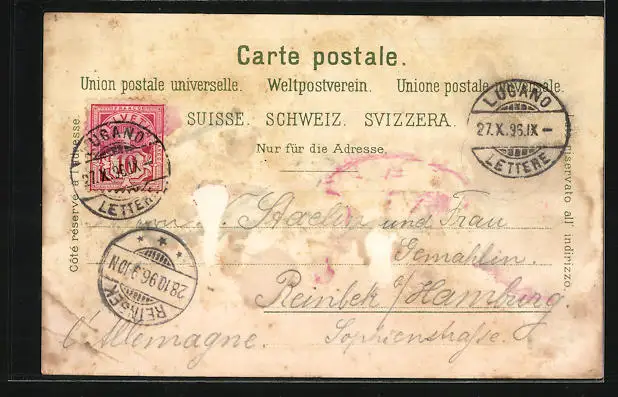 Carte postale.
Union postale universelle. Weltpostverein. Unione postale universale.
SUISSE. SCHWEIZ. SVIZZERA.
Nur für die Adresse.
Côté réservé à l'adresse.
riservato all' indirizzo.
FRANCO
10
LUGANO
27.X.96.IX-
LETTERE
LUGANO
27.X.96.IX-
LETTERE
Staelin und Frau
Gemahlin.
Reinbek b/Hamburg.
Sophienstrasse.
Allemagne.
REINBEK
28.10.96